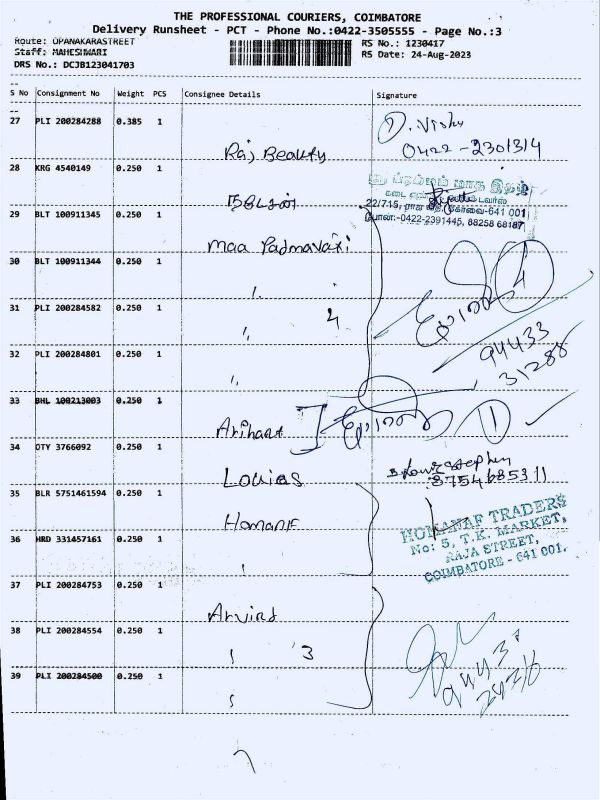 THE PROFESSIONAL COURIERS, COIMBATORE
Delivery Runsheet - PCT - Phone No.:0422-3505555 - Page No.:3
Route: OPANAKARASTREET
RS No.: 1230417
Staff: MAHESHWARI
RS Date: 24-Aug-2023
DRS No.: DCJB123041703
S No Consignment No Weight PCS Consignee Details Signature
27 PLI 200284288 0.385 1
D. Vishu
0422-2301314
Raj Beauty
28 KRG 4540149 0.250 1
ஸ்ரீ பிரம்மம் மாத
கடை
நடேசன்
22/715, ராஜ வீதி, கோவை-641 001
29 BLT 100911345 0.250 1
போன்:-0422-2391445, 88258 68187
Maa Padmavati
30 BLT 100911344 0.250 1
"
31 PLI 200284582 0.250 1
" 4
94433
31288
32 PLI 200284801 0.250 1
"
33 BHL 100213003 0.250 1
Arihant 1
34 OTY 3766092 0.250 1
Stephen
Louias
8754685311
35 BLR 5751461594 0.250 1
Homanf
HOMANAF TRADERS
No: 5, T.K. MARKET,
RAJA STREET,
COIMBATORE - 641 001.
36 HRD 331457161 0.250 1
"
37 PLI 200284753 0.250 1
Arvind
38 PLI 200284554 0.250 1
" 3
39 PLI 200284500 0.250 1
"